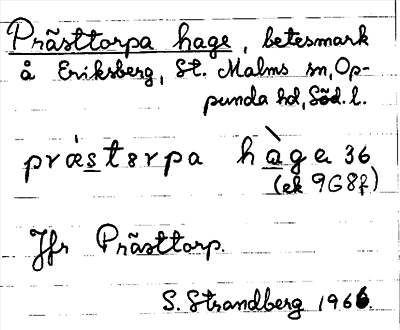 Prästtorpa hage, betesmark
å Eriksberg, St. Malms sn, Op-
punda hd, Söd. l.
præst𝑒rpa hàge 36
(ek 9G8f)
Jfr Prästtorp.
S. Strandberg 1966.